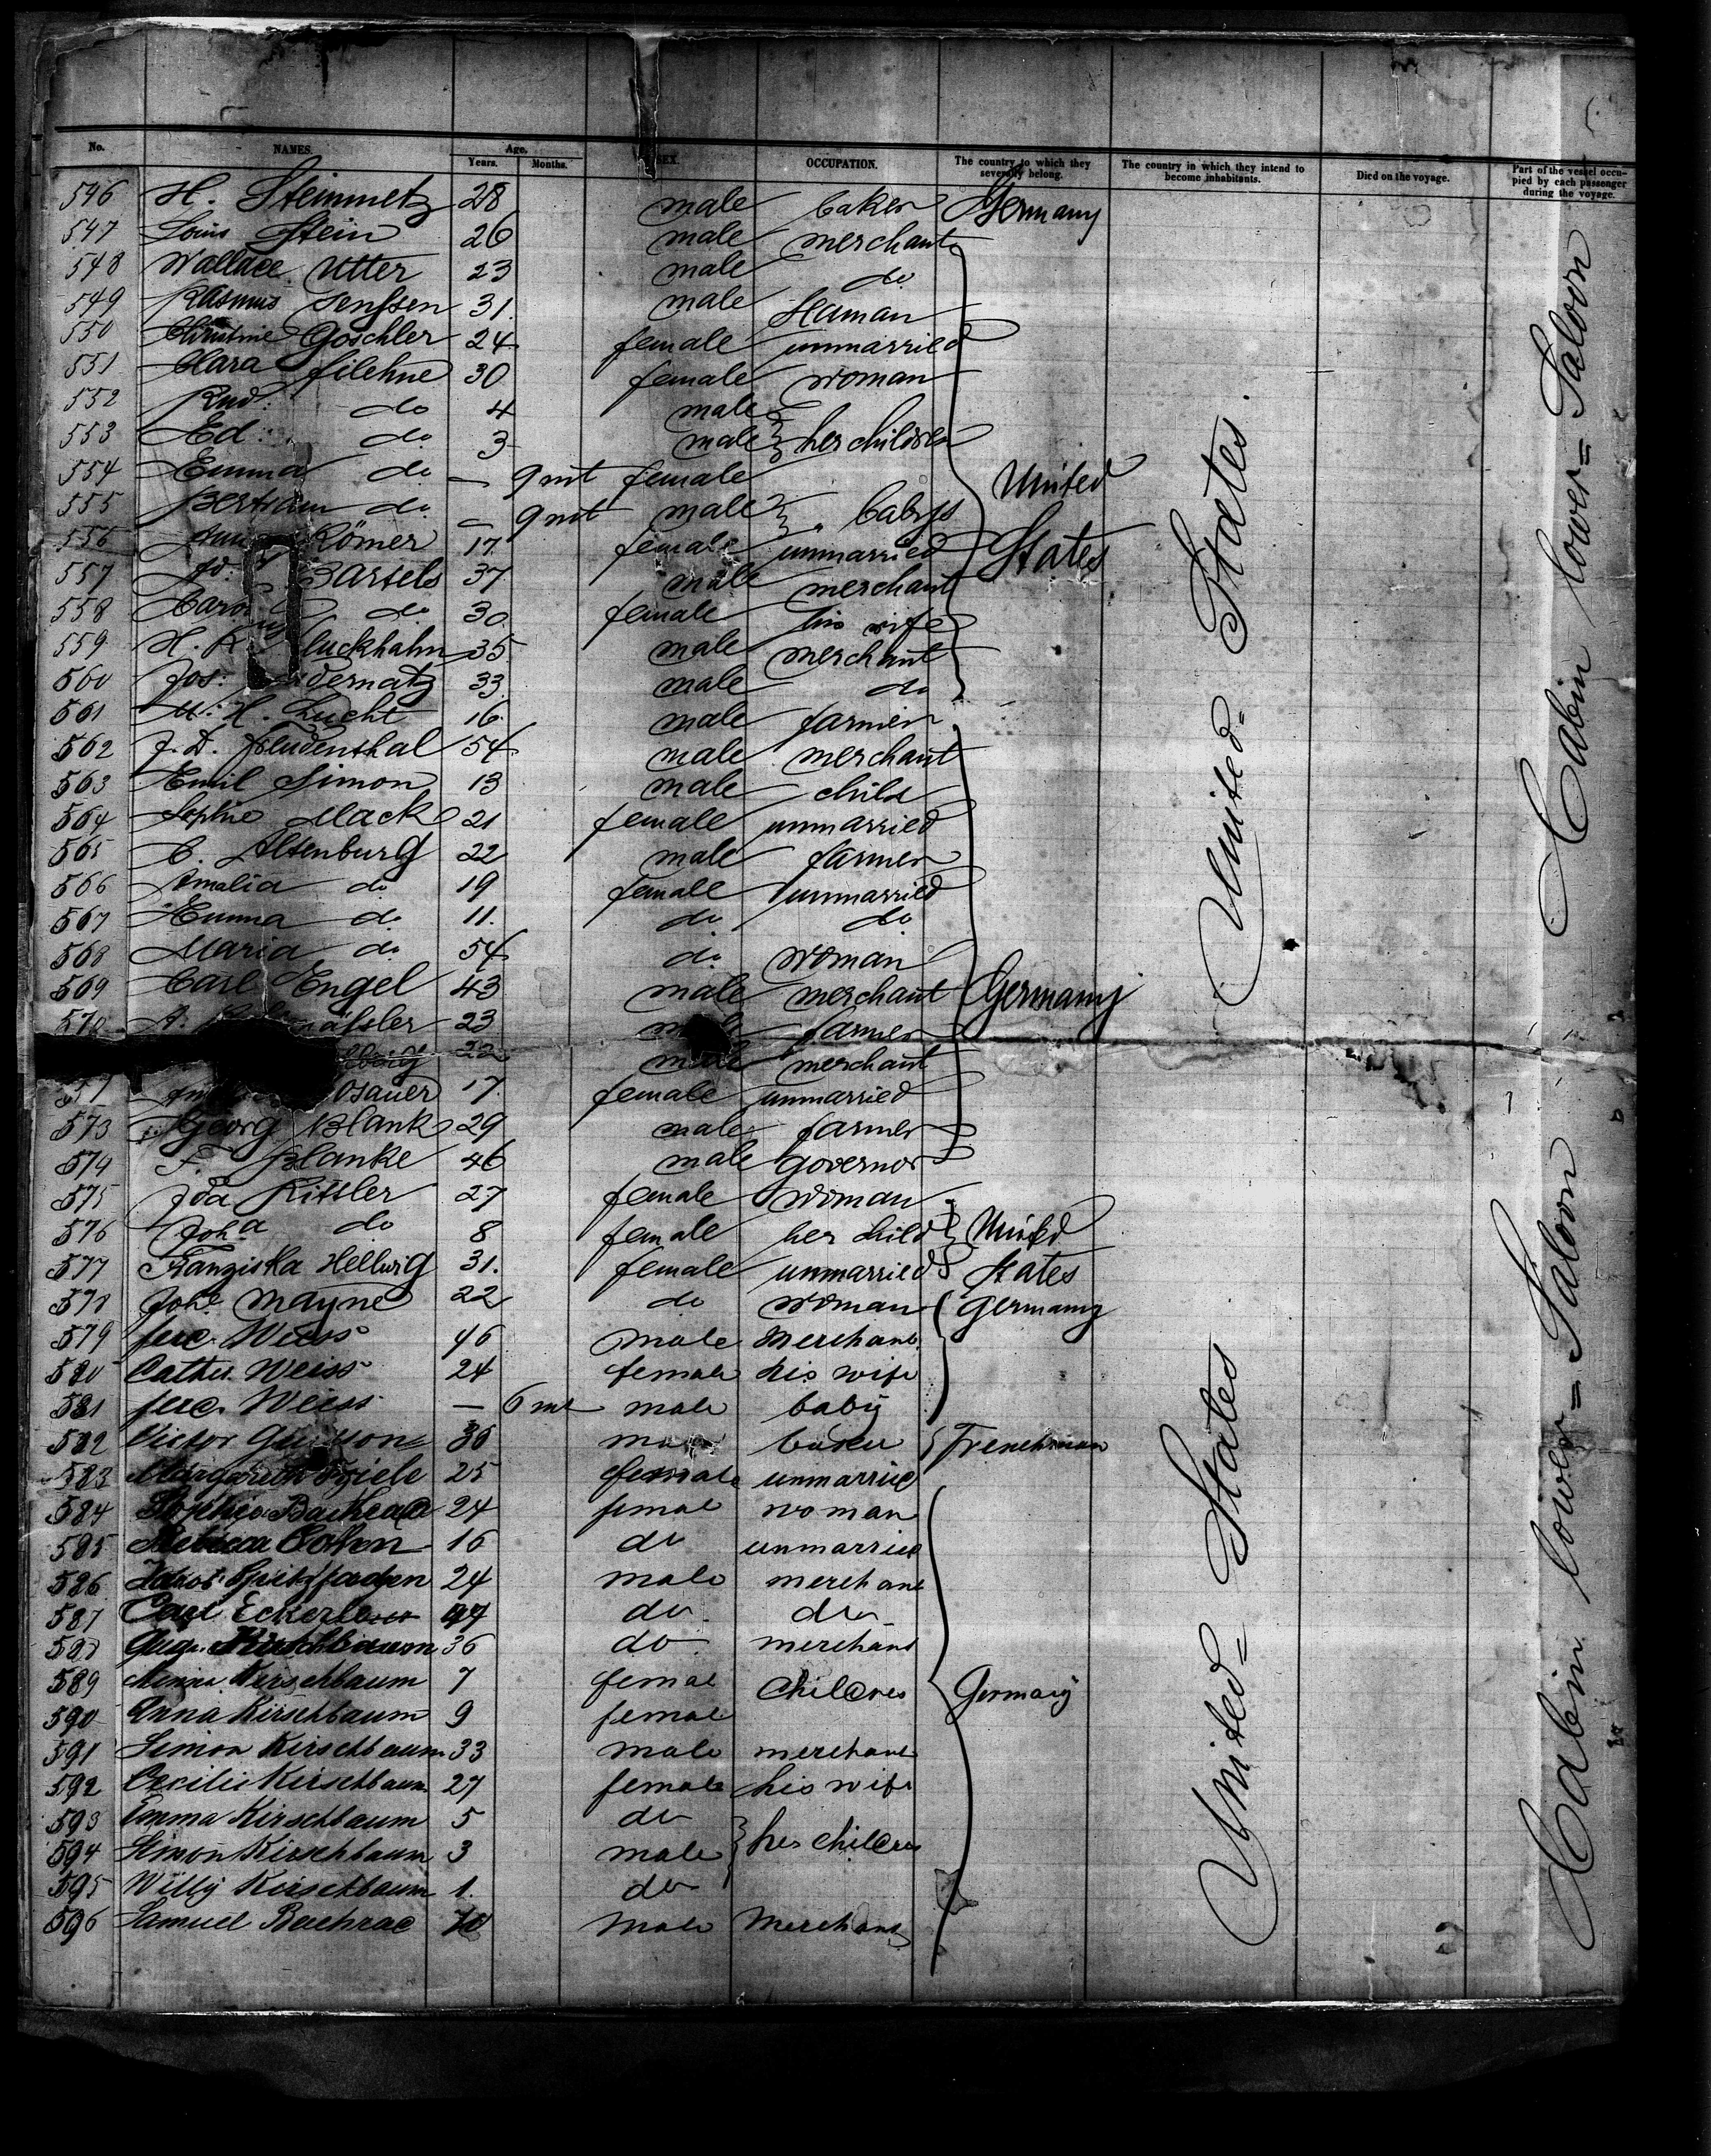 No. NAMES. Age. Years. Months. SEX. OCCUPATION. The country to which they severally belong. The country in which they intend to become inhabitants. Died on the voyage. Part of the vessel occupied by each passenger during the voyage.
546 H. Steinmetz 28 male baker Germany
547 Louis Stein 26 male merchant
548 Wallace Utter 23 male do
549 Rasmus Jenssen 31. male
550 Christine Goschler 24 female unmarried
551 Clara Filehne 30 female woman
552 Rud: do 4 male
553 Ed: do 3 male her children
554 Emma do — 9 mt female United
555 Bertram do — 9 mt male babys
556 Römer 17. female unmarried States
557 Bartels 37 male merchant
558 do 30 female his wife
559 H. luckhahn 35 male merchant
560 Jos: dernatz 33 male do
561 H. Lucht 16 male farmer
562 J. D. Freudenthal 54 male merchant
563 Emil Simon 13 male child
564 Sophie Mack 21 female unmarried
565 C. Altenburg 22 male farmer
566 Amalia do 19 female unmarried
567 Emma do 11. do do
568 Maria do 54 do woman
569 Carl Engel 43 male merchant Germany
570 A. 23 farmer
22 male merchant
17. female unmarried
573 Georg Blank 29 male farmer
574 F. Blanke 46 male governor
575 Ida Kittler 27 female woman
576 Joha do 8 female her child United
577 Franziska Hellwig 31. female unmarried States
578 Johe Mayne 22 do woman Germany
579 Weiss 46 male Merchant
580 Weiss 24 female his wife
581 Weiss — 6 mt male baby
582 Victor 36 Frenchman
583 25 female unmarried
584 24 femal woman
585 Cohn 16 do unmarried
586 24 male merchant
587 Carl do do
588 Kirschbaum 36 do merchant
589 Kirschbaum 7 femal Germany
590 Anna Kirschbaum 9 femal
591 Simon Kirschbaum 33 male merchant
592 Cecilie Kirschbaum 27 female his wife
593 Emma Kirschbaum 5 do
594 Simon Kirschbaum 3 male
595 Willy Kirschbaum 1. do
596 Samuel male Merchant
United- States.
United- States
Cabin lower= Saloon
Cabin lower= Saloon